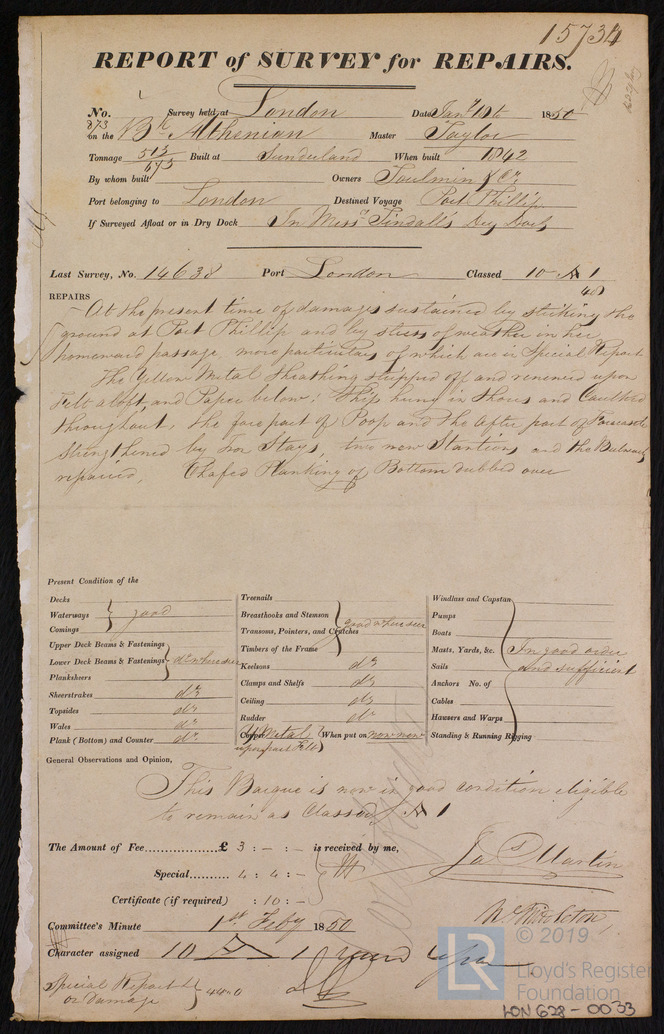 15734
REPORT of SURVEY for REPAIRS.
No. 873 Survey held at London Date Jany 18th 1850
on the Bk Athenian Master Taylor
Tonnage 513/673 Built at Sunderland When built 1842
By whom built Owners Toulmin & Co
Port belonging to London Destined Voyage Port Phillip
If Surveyed Afloat or in Dry Dock In Messrs Tindall's Dry Dock
Last Survey, No. 14638 Port London Classed 10 A 1
48
REPAIRS
At the present time of damages sustained by striking the
ground at Port Phillip and by stress of weather in her
homeward passage, more particulars of which are in Special Report
The Yellow Metal Sheathing stripped off and renewed upon
Felt aloft, and Paper below; Ship hung in Shores and Caulked
throughout, the forepart of Poop and the after part of Forecastle
strengthened by Iron Stays, two new Stantions and the Bulwarks
repaired, Chafed Planking of Bottom dubbed over
Present Condition of the
Decks
Waterways good
Comings
Upper Deck Beams & Fastenings
Lower Deck Beams & Fastenings do where seen
Plansheers
Sheerstrakes do
Topsides do
Wales do
Plank (Bottom) and Counter do
Treenails
Breasthooks and Stemson good where seen
Transoms, Pointers, and Crutches
Timbers of the Frame
Keelsons do
Clamps and Shelfs do
Ceiling do
Rudder do
Copper Y Metal (When put on now new
upon part Felt)
Windlass and Capstan
Pumps
Boats
Masts, Yards, &c. In good order
Sails and sufficient
Anchors No. of
Cables
Hawsers and Warps
Standing & Running Rigging
General Observations and Opinion,
This Barque is now in good condition eligible
to remain as Classed A 1
The Amount of Fee £ 3 : - : - is received by me,
Special 4 : 4 : -
Certificate (if required) : 10 : -
Jas Martin
Committee's Minute 1st Feby 1850
Character assigned 10 A 1
Special Report
or damage
© 2019
LR
Lloyd's Register
Foundation
LON 628-0033